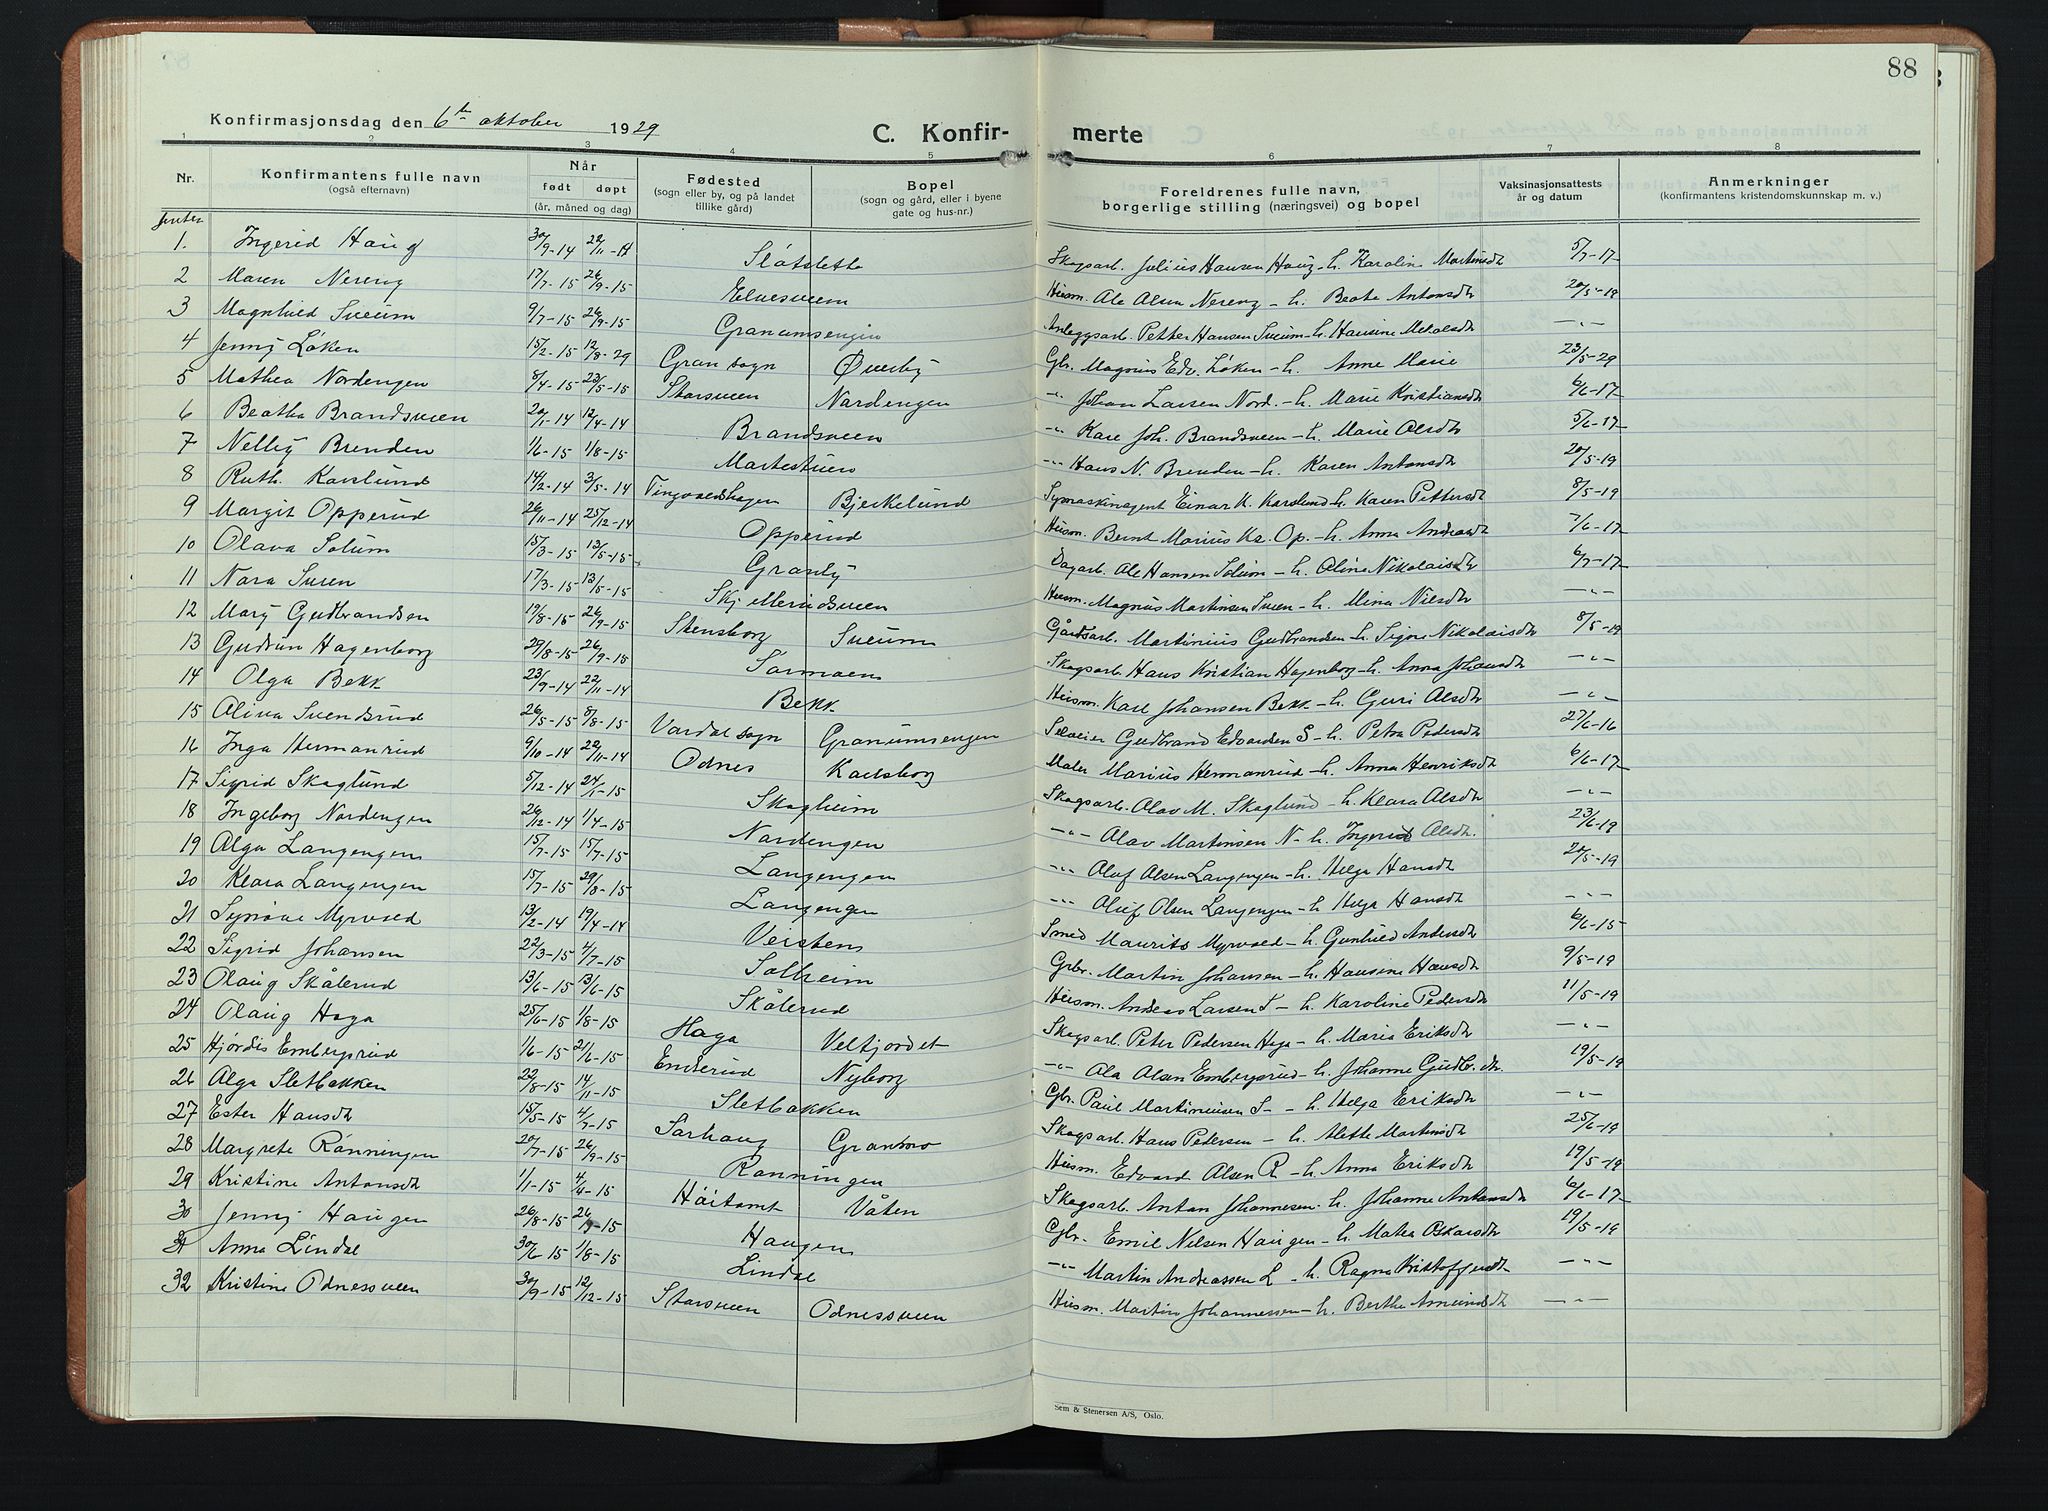 88
Konfirmasjonsdag den 6te oktober 1929
C. Konfir- merte
1 2 3 4 5 6 7 8
Nr. Konfirmantens fulle navn (også efternavn) Når født døpt (år, måned og dag) Fødested (sogn eller by, og på landet tillike gård) Bopel (sogn og gård, eller i byene gate og hus-nr.) Foreldrenes fulle navn, borgerlige stilling (næringsvei) og bopel Vaksinasjonsattests år og datum Anmerkninger (konfirmantens kristendomskunnskap m. v.)
Jenter
1. Ingerid Haug 30/9-14 22/11-14 Slåtsletta Skogsarb. Julius Hansen Haug - h. Karoline Martinsdtr 5/7-17
2 Maren Nereng 17/7-15 26/9-15 Elvesveen Husm. Ole Olsen Nereng - h. Beate Antonsdtr 20/5-19
3 Magnhild Sveum 9/7-15 26/9-15 Granumsengin Anleggsarb. Petter Hansen Sveum - h. Hansine -"-
4 Jenny Løken 15/2-15 12/8-29 Gran sogn Øverby Gbr. Magnus Edv. Løken - h. Anne Marie 23/5-29
5 Mathea Nordengen 8/4-15 23/5-15 Storsveen Nordengen -"- Johan Larsen Nord. - h. Marie Kristiansdtr 6/6-17
6 Beatha Brandsveen 20/1-14 12/4-14 Brandsveen -"- Kare Joh. Brandsveen - h. Marie Olsdtr 5/6-17
7 Nelly Brenden 1/6-15 1/8-15 Martestuen -"- Hans N. Brenden - h. Karen Antonsdtr 20/5-19
8 Ruth Karslund 14/2-14 3/5-14 Tingvoldshagen Bjerkelund Symaskinagent Einar K. Karslund - h. Karen Pettersdtr 8/5-19
9 Margit Opperud 26/11-14 25/12-14 Opperud Husm. Bernt Marius Kr. Op. - h. Anna Andreasdtr 7/6-17
10 Olava Solum 15/3-15 13/5-15 Granly Dagarb. Ole Hansen Solum - h. Oline Nikolaisdtr 6/7-17
11 Nora Sveen 17/3-15 13/5-15 Skjellerudsveen Husm. Magnus Martinsen Sveen - h. Mina Nilsdtr -"-
12 Mary Gudbrandsen 19/8-15 26/9-15 Stensborg Sveum Gårdsarb. Martinius Gudbrandsen - h. Signe Nikolaisdtr 8/5-19
13 Gudrun Hagenborg 29/8-15 26/9-15 Sormoen Skogsarb. Hans Kristian Hagenborg - h. Anna Johansdtr -"-
14 Olga Bekk 23/9-14 22/11-14 Bekk Husm. Karl Johansen Bekk - h. Guri Olsdtr -"-
15 Oliva Svendsrud 26/5-15 8/8-15 Vardal sogn Granumsengen Seleier Gudbrand Edvardsen S - h. Petra Pedersdtr 27/6-16
16 Inga Hermanrud 9/10-14 22/11-14 Odnes Karlsborg Maler Marius Hermanrud - h. Anna Henriksdtr 6/6-17
17 Sigrid Skaglund 5/12-14 24/1-15 Skogheim Skogsarb. Olav M. Skaglund - h. Klara Olsdtr -"-
18 Ingeborg Nordengen 26/12-14 1/4-15 Nordengen -"- Olav Martinsen N - h. Ingerid Olsdtr. 23/6-19
19 Olga Langengen 15/7-15 15/7-15 Langengen -"- Oluf Olsen Langengen - h. Helga Hansdtr 20/5-19
20 Klara Langengen 15/7-15 29/8-15 Langengen -"- Oluf Olsen Langengen - h. Helga Hansdtr -"-
21 Synøve Myrvold 13/2-14 19/4-14 Veisten Smed Maurits Myrvold - h. Gunhild Andersdtr 6/6-15
22 Sigrid Johansen 22/3-15 4/7-15 Solheim Grbr. Martin Johansen - h. Hansine Hansdtr 9/5-19
23 Olaug Skålerud 13/6-15 13/6-15 Skålerud Husm. Andreas Larsen S - h. Karoline Pedersdtr 11/5-19
24 Olaug Haga 25/6-15 1/8-15 Haga Veltjordet Skogsarb. Peter Pedersen Haga - h. Maria Eriksdtr -"-
25 Hjørdis Embergsrud 1/6-15 21/6-15 Enderud Nyborg -"- Ola Olsen Embergsrud - h. Johanne Gudbr.dtr. 19/5-19
26 Olga Sletbakken 22/8-15 14/11-15 Sletbakken Gbr. Paul Martiniusen S - h. Helga Eriksdtr -"-
27 Ester Hansdtr 15/5-15 4/7-15 Sørhaug Granmo Skogsarb. Hans Pedersen - h. Alette Martinsdtr 25/6-19
28 Margrete Rønningen 20/7-15 26/9-15 Rønningen Husm. Edvard Olsen R - h. Anna Eriksdtr 19/5-19
29 Kristine Antonsdtr 1/1-15 4/4-15 Høitomt Våten Skogsarb. Anton Johannesen - h. Johanne Antonsdtr 6/6-17
30 Jenny Haugen 26/8-15 26/9-15 Haugen Gbr. Emil Nilsen Haugen - h. Matea Oskarsdtr 19/5-19
31 Anna Lindal 30/6-15 1/8-15 Lindal -"- Martin Andreassen L - h. Ragna Kristoffersdtr -"-
32 Kristine Odnessveen 30/9-15 12/12-15 Storsveen Odnessveen Husm. Martin Johannessen - h. Bertha Amundsdtr -"-
Sem & Stenersen A/S, Oslo.